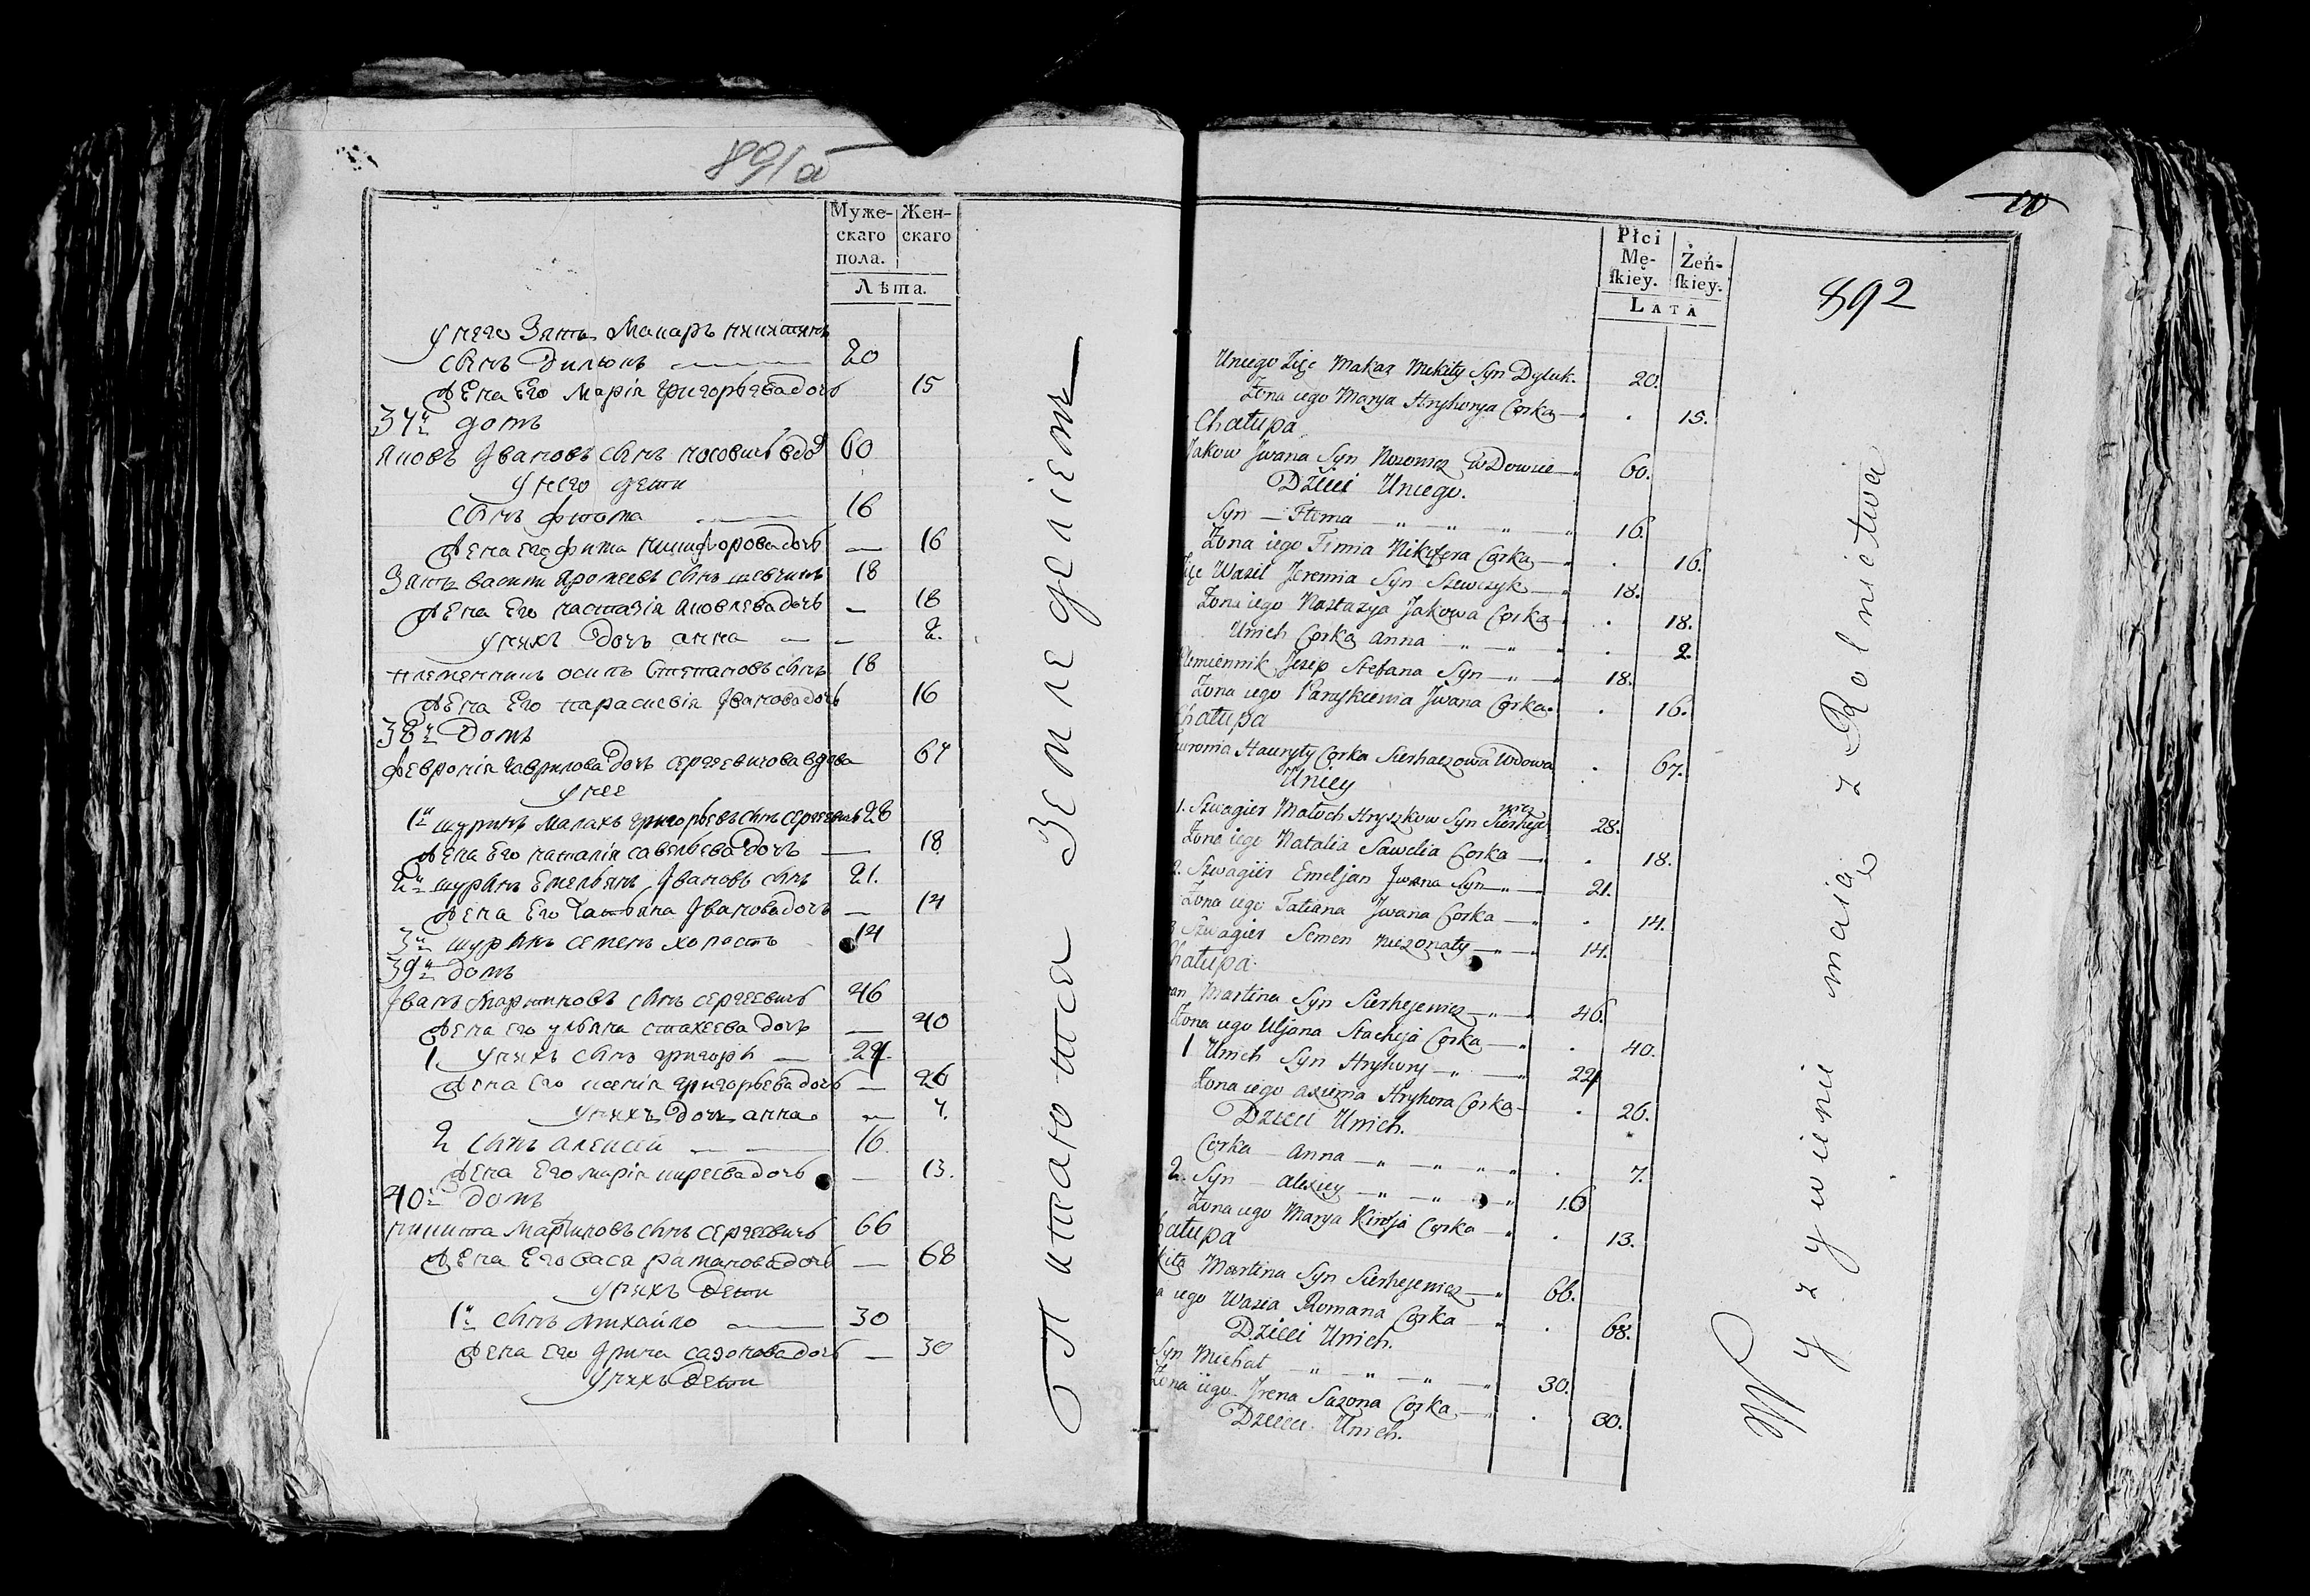 891/а
Муже-
скаго
пола.
Жен-
скаго
Лѣта.
у него Зять Макаръ никитинъ
сынъ Дилюкъ 20
Жена Его Марія григорьева дочь 15
37й домъ
Яковъ Ивановъ сынъ носовичъ вдо 60
у него дети
сынъ фтома 16
Жена его фима никифорова дочь — 16
Зять васили яромеевъ сынъ шевчикъ 18
Жена Его настазія яковлева дочь — 18
у нихъ дочь анна — 2.
племенникъ осипъ Степановъ сынъ 18
Жена Его параскевія Иванова дочь 16
38й Домъ
февронія гаврилова дочь сергеевичова вдова 67
у нее
1й шуринъ малахъ григорьевъ сынъ сергеевичъ 28
Жена Его наталія савельева дочь — 18
2й шуринъ Емельянъ Ивановъ сынъ 21.
Жена Его Татьяна Иванова дочь — 14
3й шуринъ семенъ холостъ 14
39й домъ
Иванъ Мартиновъ сынъ сергеевичъ 46
Жена его ульяна стахеева дочь — 40
1 у нихъ сынъ григори — 24.
Жена его ксенія григорьева дочь — 26
у нихъ дочь анна — 7.
2 сынъ алексей 16.
Жена Его марія киреева дочь — 13.
40й домъ
никита Мартиновъ сынъ сергеевичъ 66
Жена Его вася раманова дочь — 68
у нихъ дети
1й сынъ михайло 30
Жена Его Ирина сазонова дочь — 30
у нихъ дети
Питаются Земледелiемъ
10
892
Płci
Mę-
ſkiey.
Żeń-
ſkiey.
LATA
Uniego Zięc Makar Mikity Syn Dyluk. 20.
Żona iego Marya Hryhorya Corka 15.
Chałupa
Jakow Jwana Syn Nosowicz wDowiec 60.
Dzieci Uniego.
Syn Ftoma 16.
Żona iego Fimia Nikifera Corka 16.
Zięc Wasil Jeremia Syn Szewczyk 18.
Żona iego Nastazya Jakowa Corka 18.
Unich Corka Anna 2.
Plemiennik Jozep Stefana Syn 18.
Żona iego Paraskiewia Jwana Corka. 16.
Chałupa
Hauryły Corka Sierhaczowa Wdowa 67.
Uniey
1. Szwagier Małoch Hryszkow Syn Sierhejewicz 28.
Żona iego Natalia Sawelia Corka 18.
2. Szwagier Emeljan Jwana Syn 21.
Żona iego Tatiana Jwana Corka 14.
3 Szwagier Semen niezonaty 14.
Chałupa.
Martina Syn Sierhejewicz 46.
Żona iego Uljana Stacheja Corka 40.
1 Unich Syn Hryhory 24
Żona iego axienia Hryhora Corka 26.
Dzieci Unich.
Corka Anna 7.
2. Syn Alexiey 16
Żona iego Marya Kireja Corka 13.
Chałupa
Martina Syn Sierhejewicz 66.
iego Wasia Romana Corka 68.
Dzieci Unich.
Syn Michał 30.
Żona iego Jrena Sazona Corka 30.
Dzieci Unich.
Wyzywienie maią z Rolnictwa